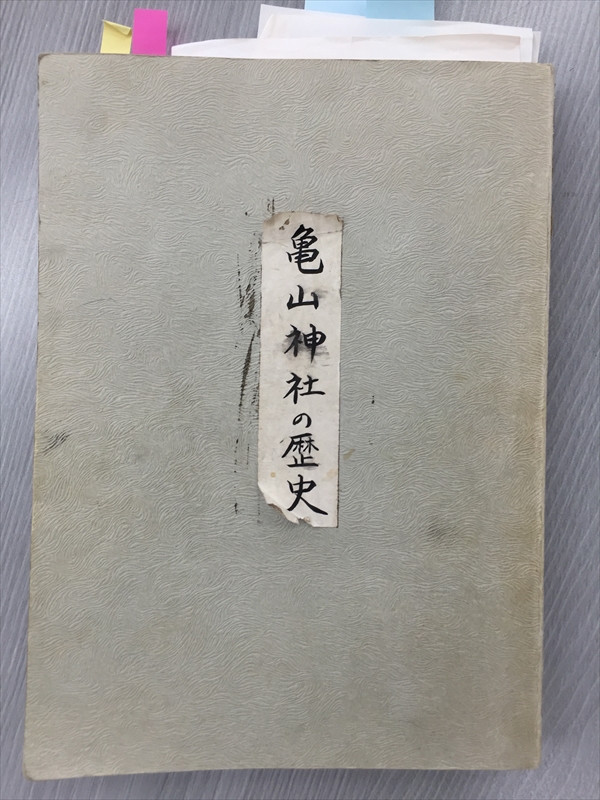 亀山神社の歴史